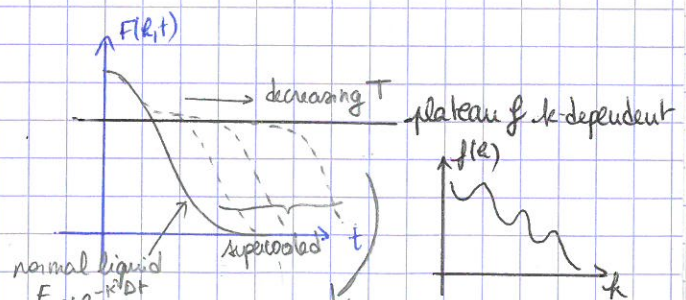 F(k,t)
decreasing T
plateau f k-dependent
f(k)
supercooled
t
normal liquid
k